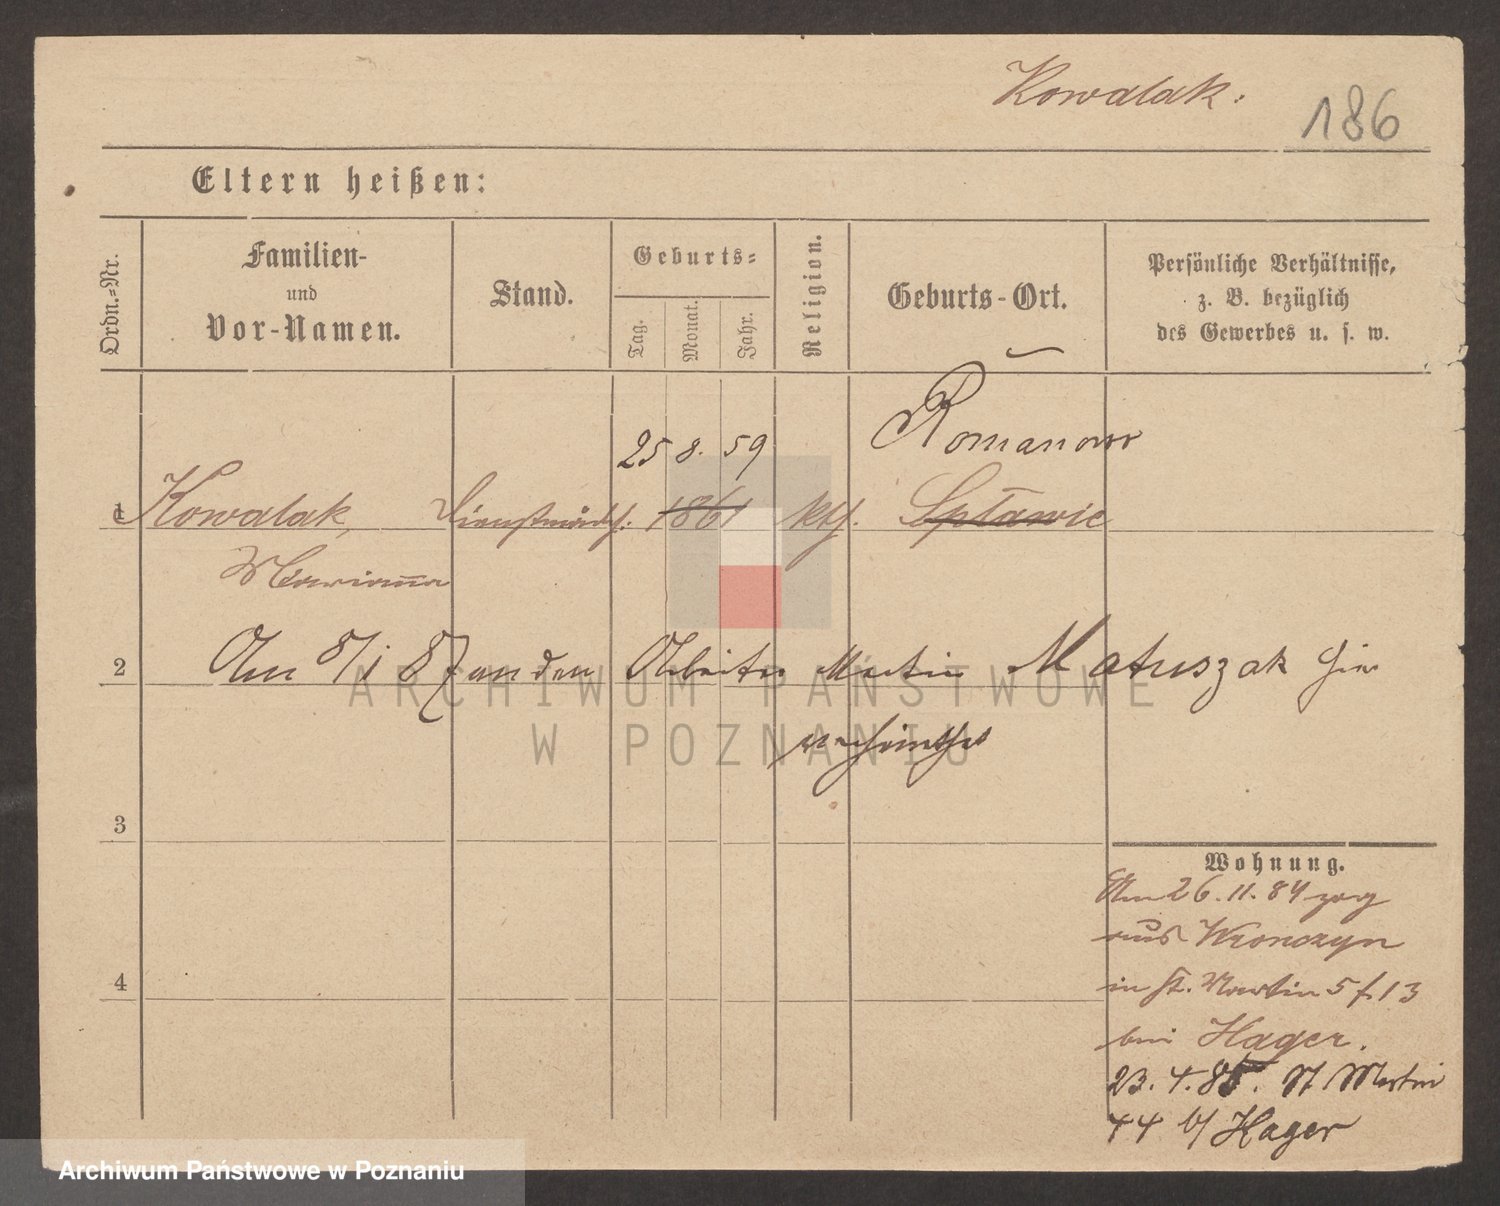 Kowalak.
186
Eltern heißen:
Ordn.=Nr.
Familien-
und
Vor-Namen.
Stand.
Geburts=
Tag.
Monat.
Jahr.
Religion.
Geburts-Ort.
Persönliche Verhältnisse,
z. B. bezüglich
des Gewerbes u. s. w.
25 8. 59 Romanowo
1 Kowalak, Dienstmädch. 1861 kth. Spławie
Marianna
2 Am 8/1 87 an den Arbeiter Martin Matuszak hier
verheirathet
3
4
Wohnung.
Am 26.11.84 zog
aus Wronczyn
in St. Martin 5 f. 13
bei Hager.
23.4.85. St Martin
44 b/ Hager
ARCHIWUM PAŃSTWOWE
W POZNANIU
Archiwum Państwowe w Poznaniu